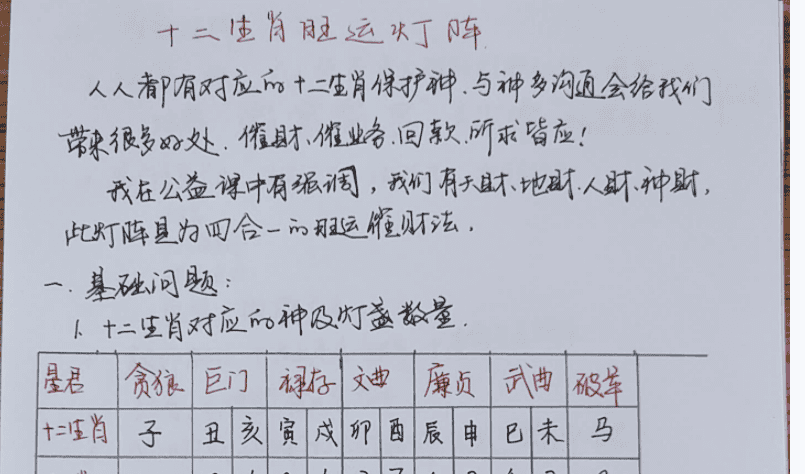 十二生肖旺运灯阵
人人都有对应的十二生肖保护神、与神多沟通会给我们
带来很多好处、催财、催业务、回款、所求皆应!
我在公益课中有强调,我们有天财、地财、人财、神财,
此灯阵是为四合一的旺运催财法。
一、基础问题:
1. 十二生肖对应的神及灯盏数量.
星君 贪狼 巨门 禄存 文曲 廉贞 武曲 破军
十二生肖 子 丑 亥 寅 戌 卯 酉 辰 申 巳 未 马